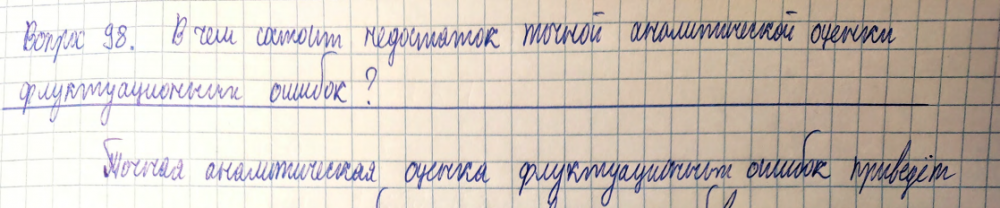 Вопрос 98. В чем состоит недостаток точной аналитической оценки
флуктуационных ошибок?
Точная аналитическая оценка флуктуационных ошибок приведёт